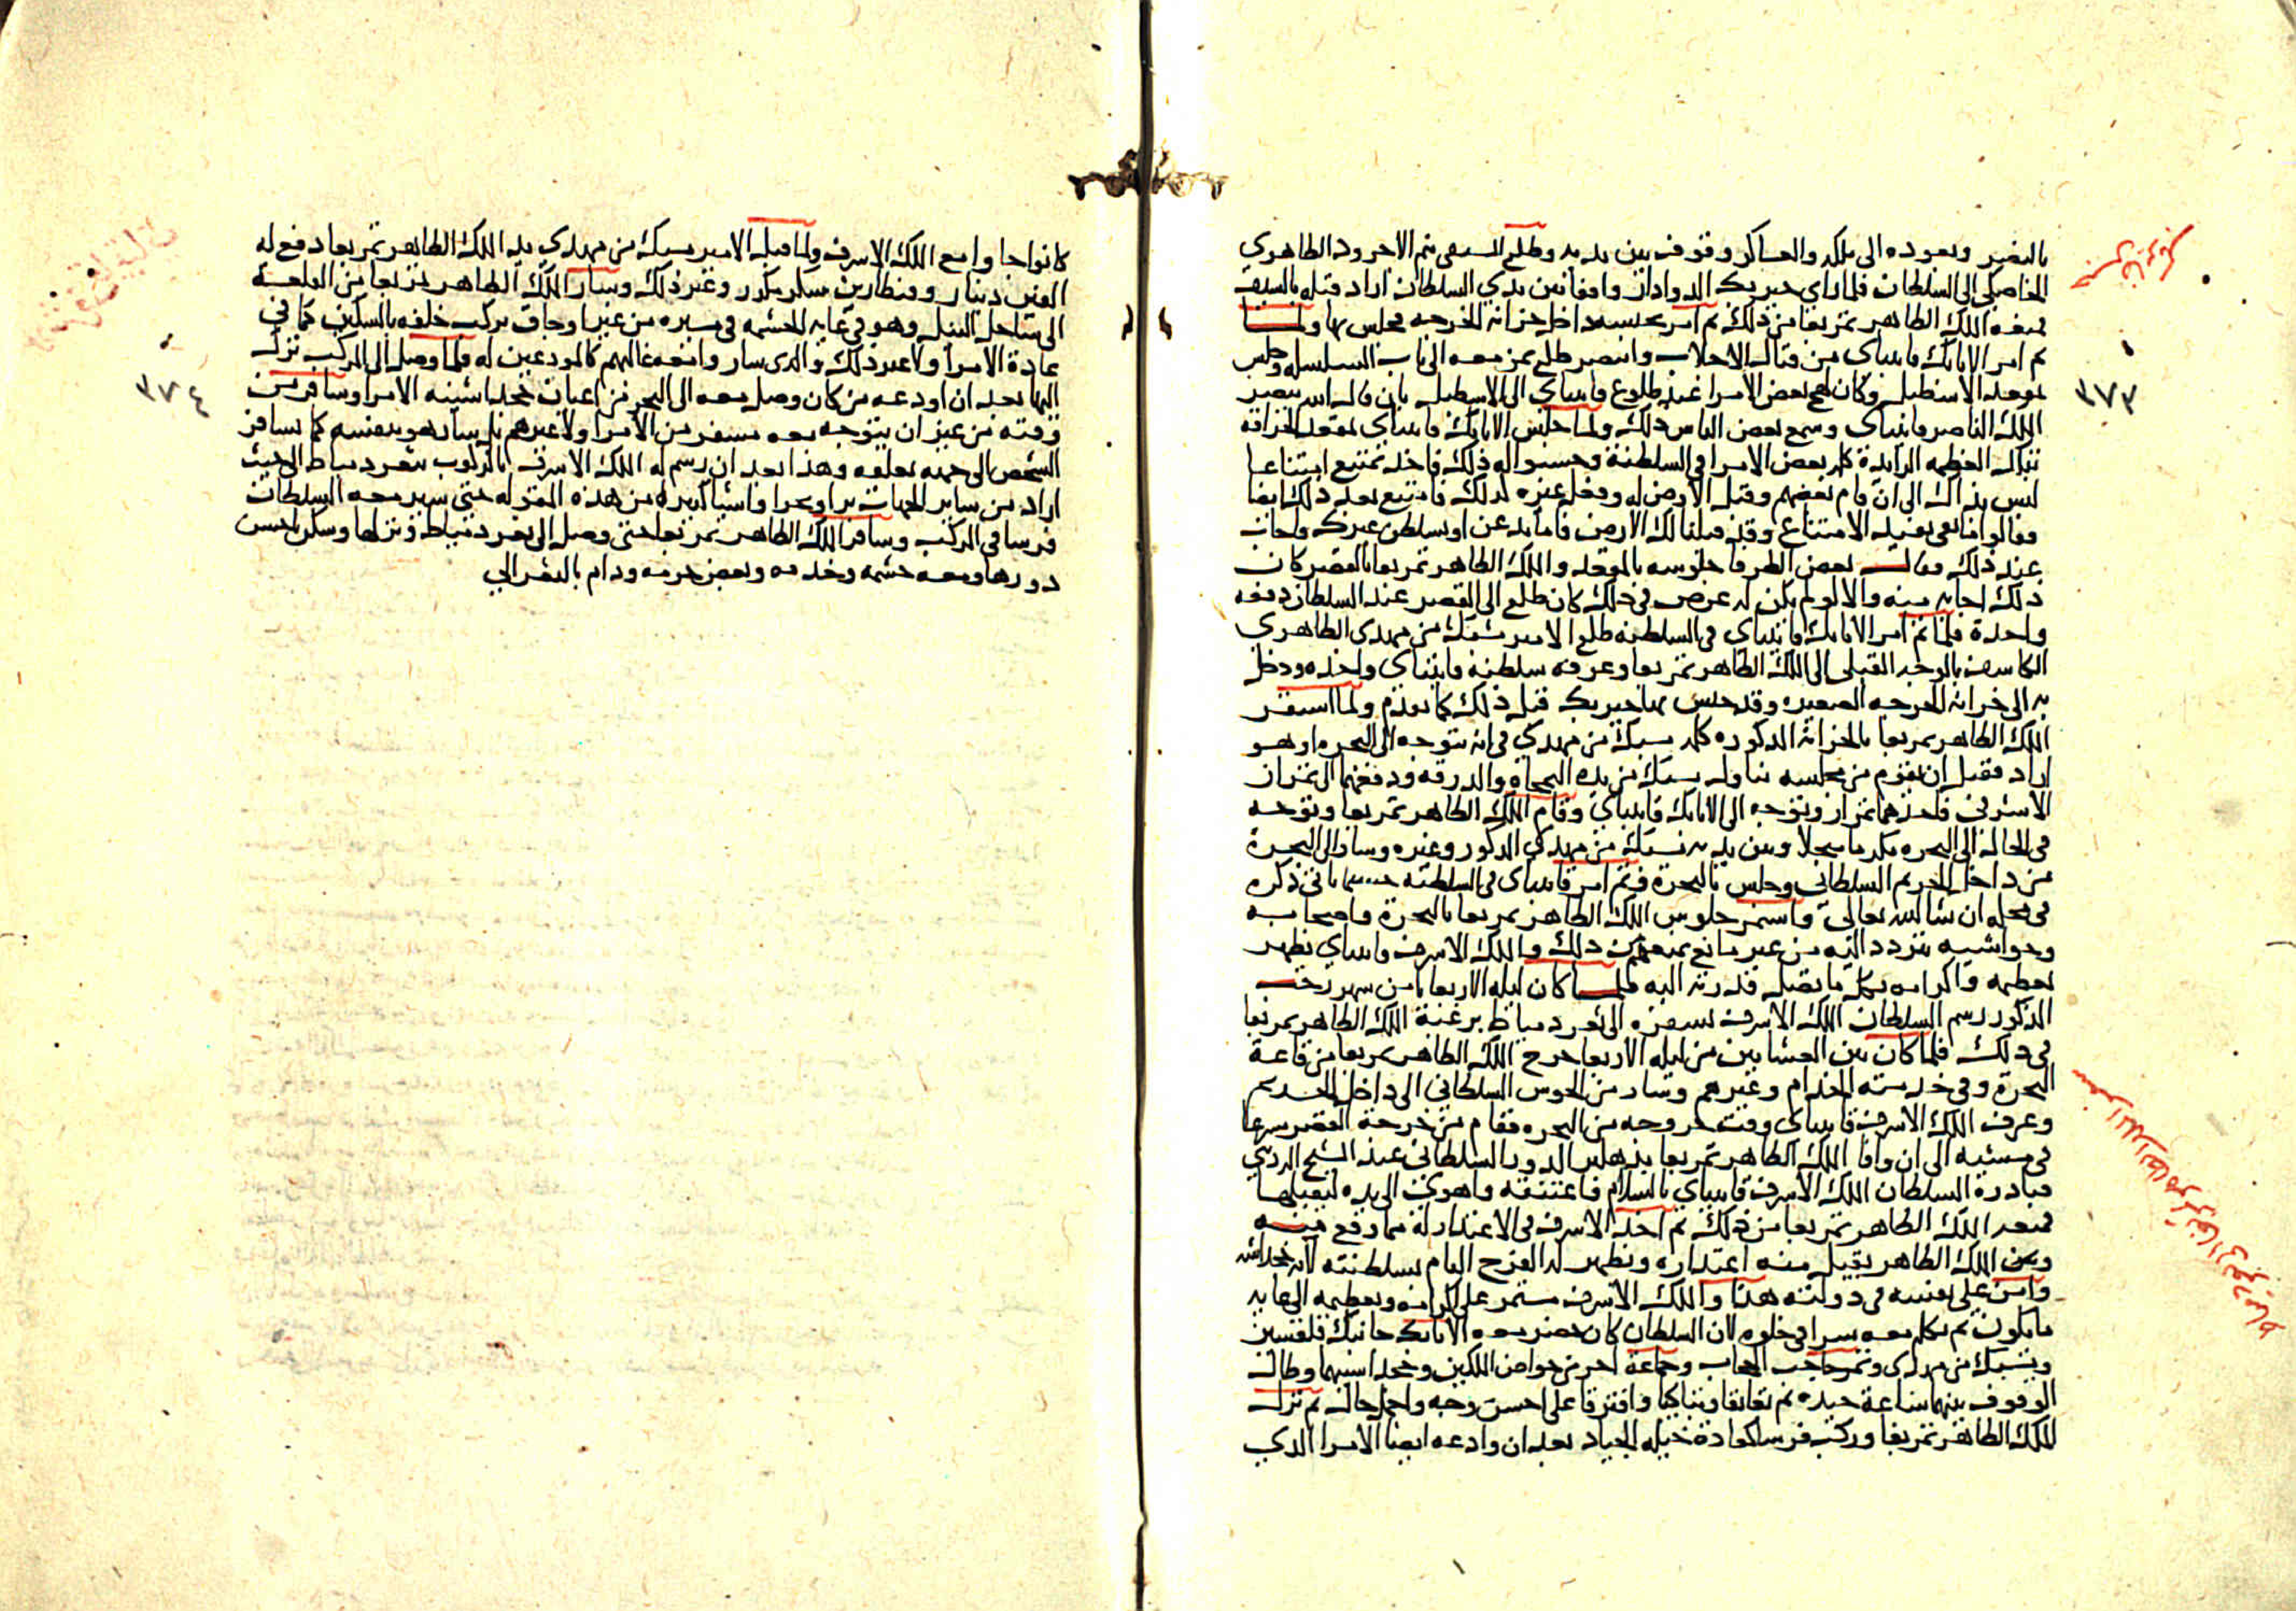 بالنصر وبعوده الى ملكه والعساكر وقوف بين يديه وطلع السيفى تنم الاجرود الظاهرى
الخاصكى الى السلطان فلما راى خيربك الدوادار واقفا بين يدي السلطان اراد قتله بالسيف
فمنعه الملك الظاهر تمربغا من ذلك ثم امر بحبسه داخل خزانة الخرجه فحبس بها ولما
تم امر الاتابك قايتباى من قتال الاجلاب وانتصر طلع بمن معه الى باب السلسله وجلس
بمقعد الاسطبل وكان لهج بعض الامرا عند طلوع قايتباي الى الاسطبل بان قال الله ينصر
الملك الناصر قايتباى وسمع بعض الناس ذلك ولما جلس الاتابك قايتباى بمقعد الحراقة
تبالـ العظمه الزايدة كلمه بعض الامرا فى السلطنة وحسنوا له ذلك فاخذ يمتنع امتناعا
ليس بذاك الى ان قام بعضهم وقبل الارض له وفعل غيره كذلك فامتنع بعد ذلك ايضا
فقالوا ما بقى يفيد الامتناع وقد قبلنا لك الارض فاما تذعن او نسلطن غيرك فاجاب
عند ذلك وقال بعض الظرفا جلوسه بالمقعد والملك الظاهر تمربغا بالقصر كان
ذلك اجابه منه والا لو لم يكن له غرض فى ذلك كان طلع الى القصر عند السلطان دفعه
واحدة فلما تم امر الاتابك قايتباى فى السلطنه طلع الامير يشبك من مهدى الظاهرى
الكاشف بالوجه القبلى الى الملك الظاهر تمربغا وعرفه سلطنة قايتباى واخذه ودخل
به الى خزانة الخرجه الصغيره وقد حبس بها خيربك قبل ذلك كما تقدم ولما استقر
الملك الظاهر تمربغا بالخزانة المذكوره كلمه يشبك من مهدي فى انه يتوجه الى البحره او هو
اراد فقبل ان يقوم من مجلسه تناول يشبك من يده النمجاه والدرقه ودفعهما الى تمراز
الاشرفى فاخذهما تمراز وتوجه الى الاتابك قايتباي وقام الملك الظاهر تمربغا وتوجه
فى الحال الى البحره مكرما مبجلا وبين يديه يشبك من مهدى المذكور وغيره وسار الى البحرة
من داخل الحريم السلطانى وجلس بالبحرة وتم امر قايتباى فى السلطنه حسبما ياتى ذكره
فى محله ان شا الله تعالى واستمر جلوس الملك الظاهر تمربغا بالبحرة واصحابه
وحواشيه تتردد اليه من غير مانع يمنعهم من ذلك والملك الاشرف قايتباي يظهر
تعظيمه واكرامه بكل ما تصل قدرته اليه فلما كان ليله الاربعا ثامن شهر رجب
المذكور رسم السلطان الملك الاشرف بسفره الى ثغر دمياط برغبة الملك الظاهر تمربغا
فى ذلك فلما كان بين العشايين من ليله الاربعا خرج الملك الظاهر تمربغا من قاعة
البحرة وفى خدمته الخدام وغيرهم وسار من الحوش السلطانى الى داخل الحريم
وعرف الملك الاشرف قايتباى وقت خروجه من البحره فقام من خرجة القصر مسرعا
فى مشيه الى ان وافا الملك الظاهر تمربغا بدهليز الدور السلطانى عند الشيح الرديني
فبادره السلطان الملك الاشرف قايتباي بالسلام فاعتنقه واهوى الى يده ليقبلها
فمنعه الملك الظاهر تمربغا من ذلك ثم اخذ الاشرف فى الاعتذار له مما وقع منه
وبقى الملك الظاهر يقبل منه اعتذاره ويظهر له الفرح العام بسلطنته لانه خجداشه
وامن على نفسه فى دولته هذا والملك الاشرف مستمر على اكرامه وتعظيمه الى غايه
ما يكون ثم تكلم معه سرا فى خلوه لان السلطان كان حضر معه الاتابك جانبك قلقسيز
ويشبك من مهدى وتمر حاجب الحجاب وجماعة اخر من خواص الملكين وخجداشيتهما وطال
الوقوف بينهما ساعة جيده ثم تعانقا وتباكيا وافترقا على احسن وجه واجمل حال ثم نزل
الملك الظاهر تمربغا وركب فرسا كعادة خيله الجياد بعد ان وادعه ايضا الامرا الذي
١٧٣
كانوا جاوا مع الملك الاشرف ولما قبل الامير يشبك من مهدي يد الملك الظاهر تمربغا دفع له
الفى دينار وقنطارين سكر مكرر وغير ذلك وسار الملك الظاهر تمربغا من القلعة
الى ساحل النيل وهو فى غايه الحشمه فى مسيره من غير اوجاقى يركب خلفه بالسكين كما هى
عادة الامرا ولا غير ذلك والذى سار وامعه غالبهم كالمودعين له فلما وصل الى المركب نزل
اليها بعد ان اودعه من كان وصل معه الى البحر من اعيان خجداشيته الامرا وسافر من
وقته من غير ان يتوجه معه مسفر من الامرا ولا غيرهم بل سار هو بنفسه كما يسافر
الشخص الى جهه تعلقه وهذا بعد ان رسم له الملك الاشرف بالركوب بثغر دمياط الى حيث
اراد من ساير الجهات برا وبحرا واشيا كثيره من هذه المقوله حتى سير معه السلطان
فرسا فى المركب وسافر الملك الظاهر تمربغا حتى وصل الى ثغر دمياط ونزلها وسكن باحسن
دورها ومعه حشمه وخدمه وبعض حرمه ودام بالثغر الى
١٧٤